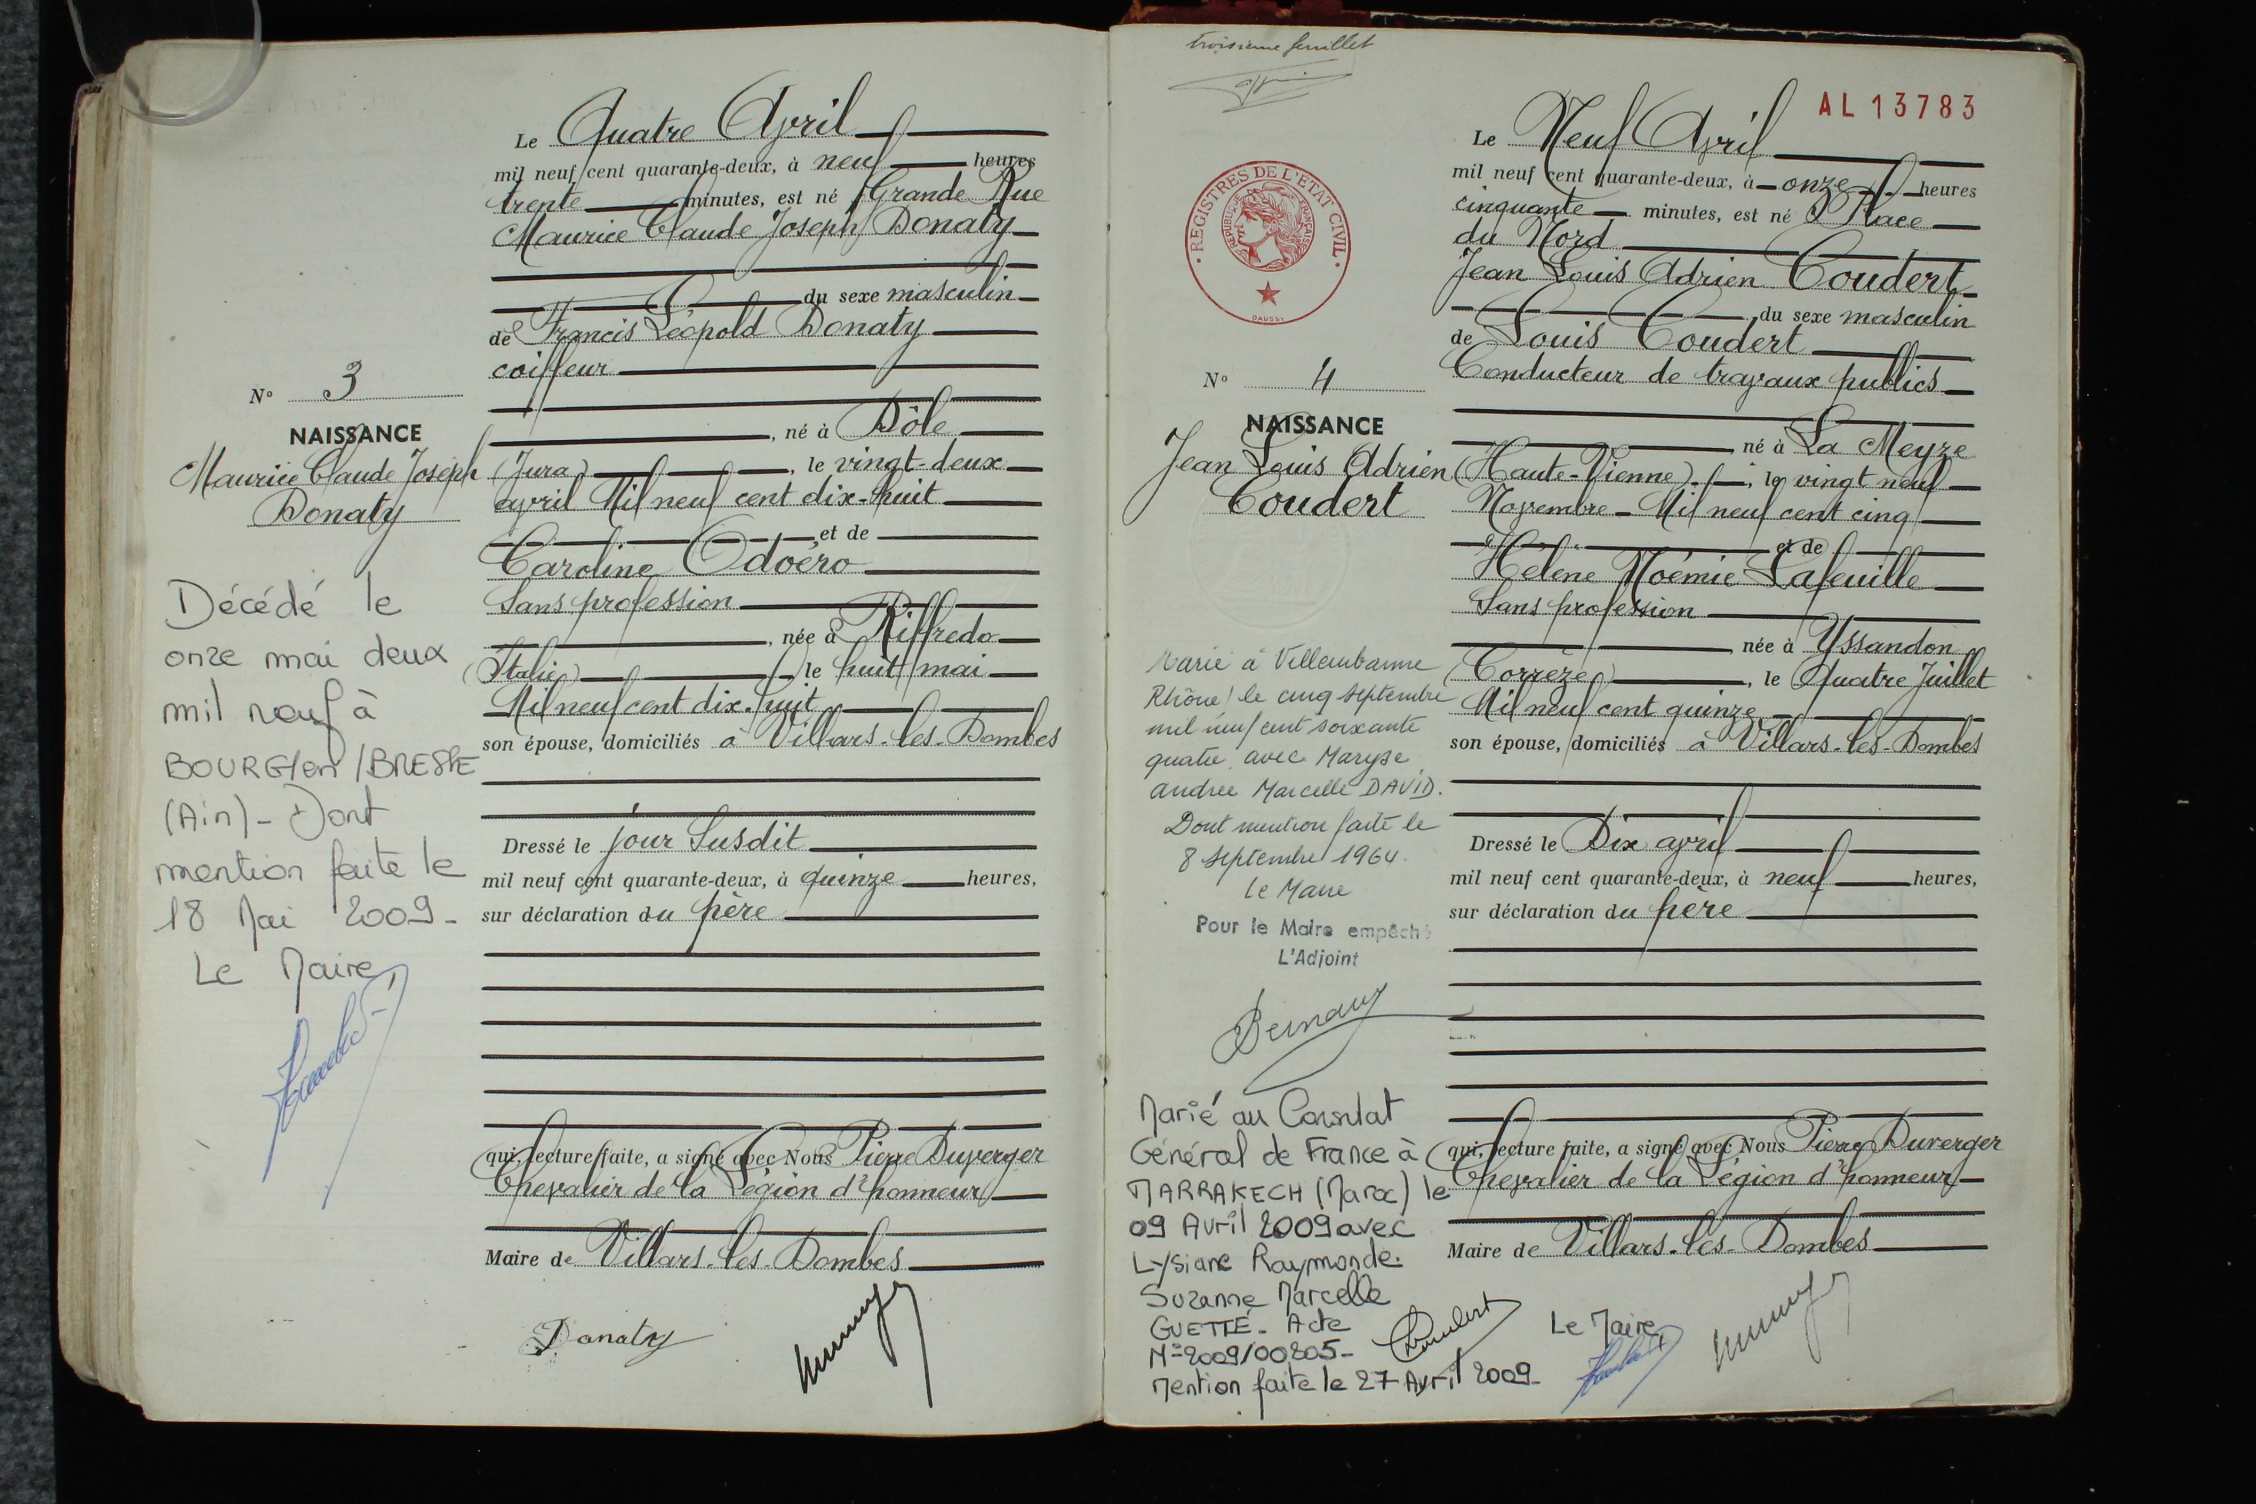 Le Quatre Avril
mil neuf cent quarante-deux, à neuf heures
trente minutes, est né Grande Rue
Maurice Claude Joseph Donaty
du sexe masculin
de Francis Léopold Donaty
coiffeur
N° 3
NAISSANCE
Maurice Claude Joseph
Donaty
, né à Dôle
(Jura) , le vingt-deux
avril Mil neuf cent dix-huit
et de
Caroline Odoéro
Sans profession
, née à Riffredo
(Italie) le huit mai
Mil neuf cent dix-huit
son épouse, domiciliés à Villars-les-Dombes
Décédé le
onze mai deux
mil neuf à
BOURG/en/BRESSE
(Ain) - Dont
mention faite le
18 Mai 2009 -
Le Maire
Dressé le jour Susdit
mil neuf cent quarante-deux, à quinze heures,
sur déclaration du père
qui, lecture faite, a signé avec Nous Pierre Duverger
Chevalier de la Légion d'honneur
Maire de Villars-les-Dombes
Donaty
troisième feuillet
AL 13783
Le Neuf Avril
mil neuf cent quarante-deux, à onze heures
cinquante minutes, est né Place
du Nord
Jean Louis Adrien Coudert
du sexe masculin
de Louis Coudert
Conducteur de travaux publics
REGISTRES DE L'ETAT CIVIL
REPUBLIQUE FRANÇAISE
DAUSSY
N° 4
NAISSANCE
Jean Louis Adrien
Coudert
né à La Meyze
(Haute-Vienne) , le vingt neuf
Novembre - Mil neuf cent cinq
et de
Hélène Noémie Lafeuille
Sans profession
née à Yssandon
(Corrèze) , le Quatre Juillet
Mil neuf cent quinze
son épouse, domiciliés à Villars-les-Dombes
Marié à Villeurbanne
Rhône) le cinq septembre
mil neuf cent soixante
quatre avec Maryse
andrée Marcelle DAVID.
Dont mention faite le
8 septembre 1964.
Le Maire
Pour le Maire empêché
L'Adjoint
Dressé le Dix avril
mil neuf cent quarante-deux, à neuf heures,
sur déclaration du père
qui, lecture faite, a signé avec Nous Pierre Duverger
Chevalier de la Légion d'honneur
Maire de Villars-les-Dombes
Marié au Consulat
Général de France à
MARRAKECH (Maroc) le
09 Avril 2009 avec
Lysiane Raymonde
Suzanne Marcelle
GUETTÉ - Acte
N° 2009/00205 -
Mention faite le 27 Avril 2009 -
Le Maire